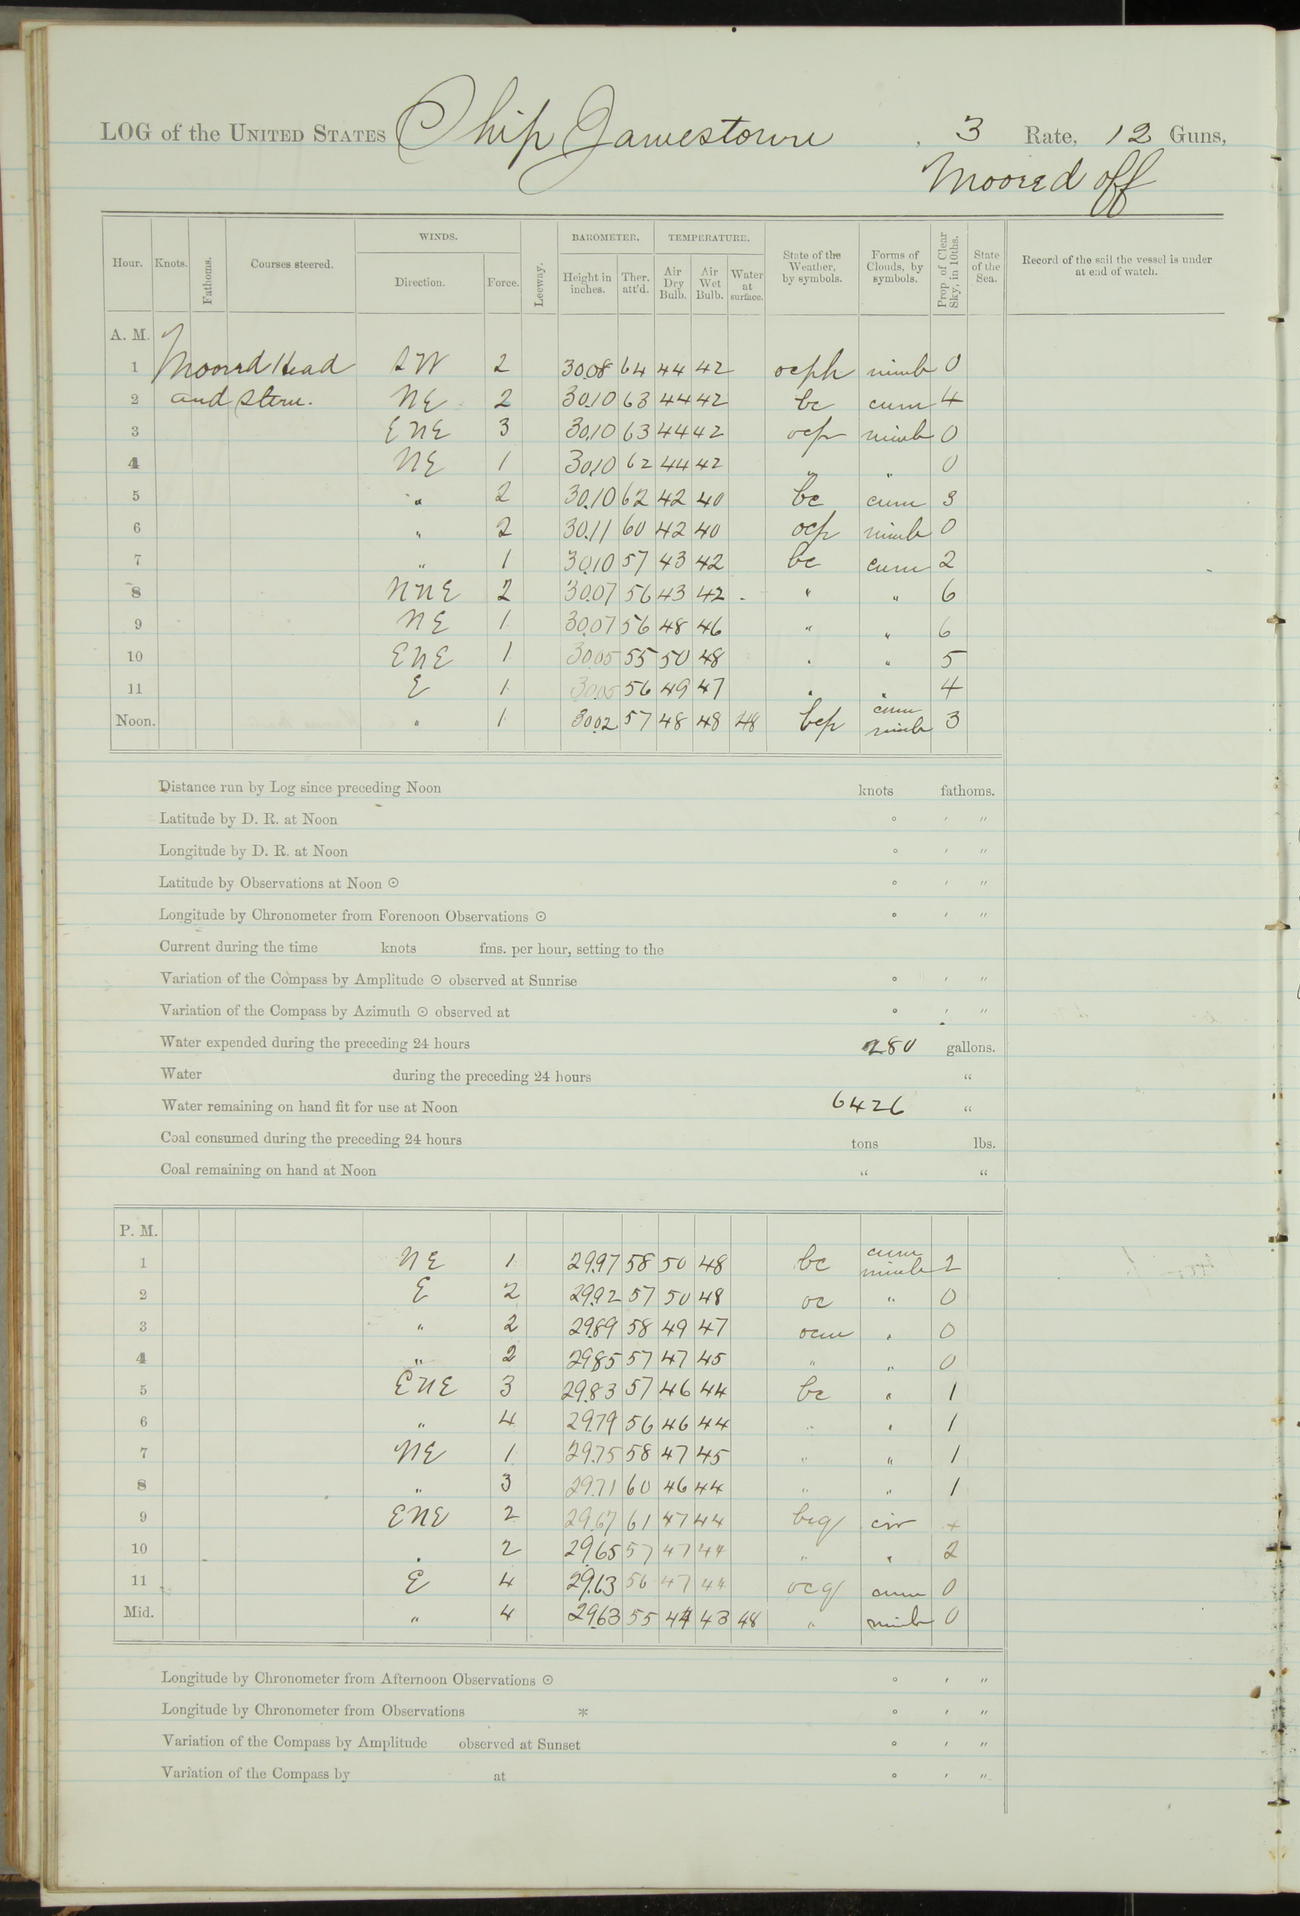 LOG of the UNITED STATES Ship Jamestown, 3 Rate, 12 Guns,
Moored off
WINDS. BAROMETER. TEMPERATURE.
Hour. Knots. Fathoms. Courses steered. Direction. Force. Leeway. Height in inches. Ther. att'd. Air Dry Bulb. Air Wet Bulb. Water at surface. State of the Weather, by symbols. Forms of Clouds, by symbols. Prop. of Clear Sky, in 10ths. State of the Sea. Record of the sail the vessel is under at end of watch.
A. M.
1 Moored Head SW 2 30.08 64 44 42 ocph nimb 0
2 and Stern. NE 2 30.10 63 44 42 bc cum 4
3 ENE 3 30.10 63 44 42 ocp nimb 0
4 NE 1 30.10 62 44 42 " " 0
5 " 2 30.10 62 42 40 bc cum 3
6 " 2 30.11 60 42 40 ocp nimb 0
7 " 1 30.10 57 43 42 bc cum 2
8 NNE 2 30.07 56 43 42 " " 6
9 NE 1 30.07 56 48 46 " " 6
10 ENE 1 30.05 55 50 48 " " 5
11 E 1 30.05 56 49 47 " " 4
Noon. " 1 30.02 57 48 48 48 bcp cum nimb 3
Distance run by Log since preceding Noon knots fathoms.
Latitude by D. R. at Noon ° ′ ″
Longitude by D. R. at Noon ° ′ ″
Latitude by Observations at Noon ☉ ° ′ ″
Longitude by Chronometer from Forenoon Observations ☉ ° ′ ″
Current during the time knots fms. per hour, setting to the
Variation of the Compass by Amplitude ☉ observed at Sunrise ° ′ ″
Variation of the Compass by Azimuth ☉ observed at ° ′ ″
Water expended during the preceding 24 hours 280 gallons.
Water during the preceding 24 hours "
Water remaining on hand fit for use at Noon 6426 "
Coal consumed during the preceding 24 hours tons lbs.
Coal remaining on hand at Noon " "
P. M.
1 NE 1 29.97 58 50 48 bc cum nimb 2
2 E 2 29.92 57 50 48 oc " 0
3 " 2 29.89 58 49 47 ocm " 0
4 " 2 29.85 57 47 45 " " 0
5 ENE 3 29.83 57 46 44 bc " 1
6 " 4 29.79 56 46 44 " " 1
7 NE 1 29.75 58 47 45 " " 1
8 " 3 29.71 60 46 44 " " 1
9 ENE 2 29.67 61 47 44 bcq cir 4
10 " 2 29.65 57 47 44 " " 2
11 E 4 29.63 56 47 44 ocq cum 0
Mid. " 4 29.63 55 44 43 48 " nimb 0
Longitude by Chronometer from Afternoon Observations ☉ ° ′ ″
Longitude by Chronometer from Observations * ° ′ ″
Variation of the Compass by Amplitude observed at Sunset ° ′ ″
Variation of the Compass by at ° ′ ″